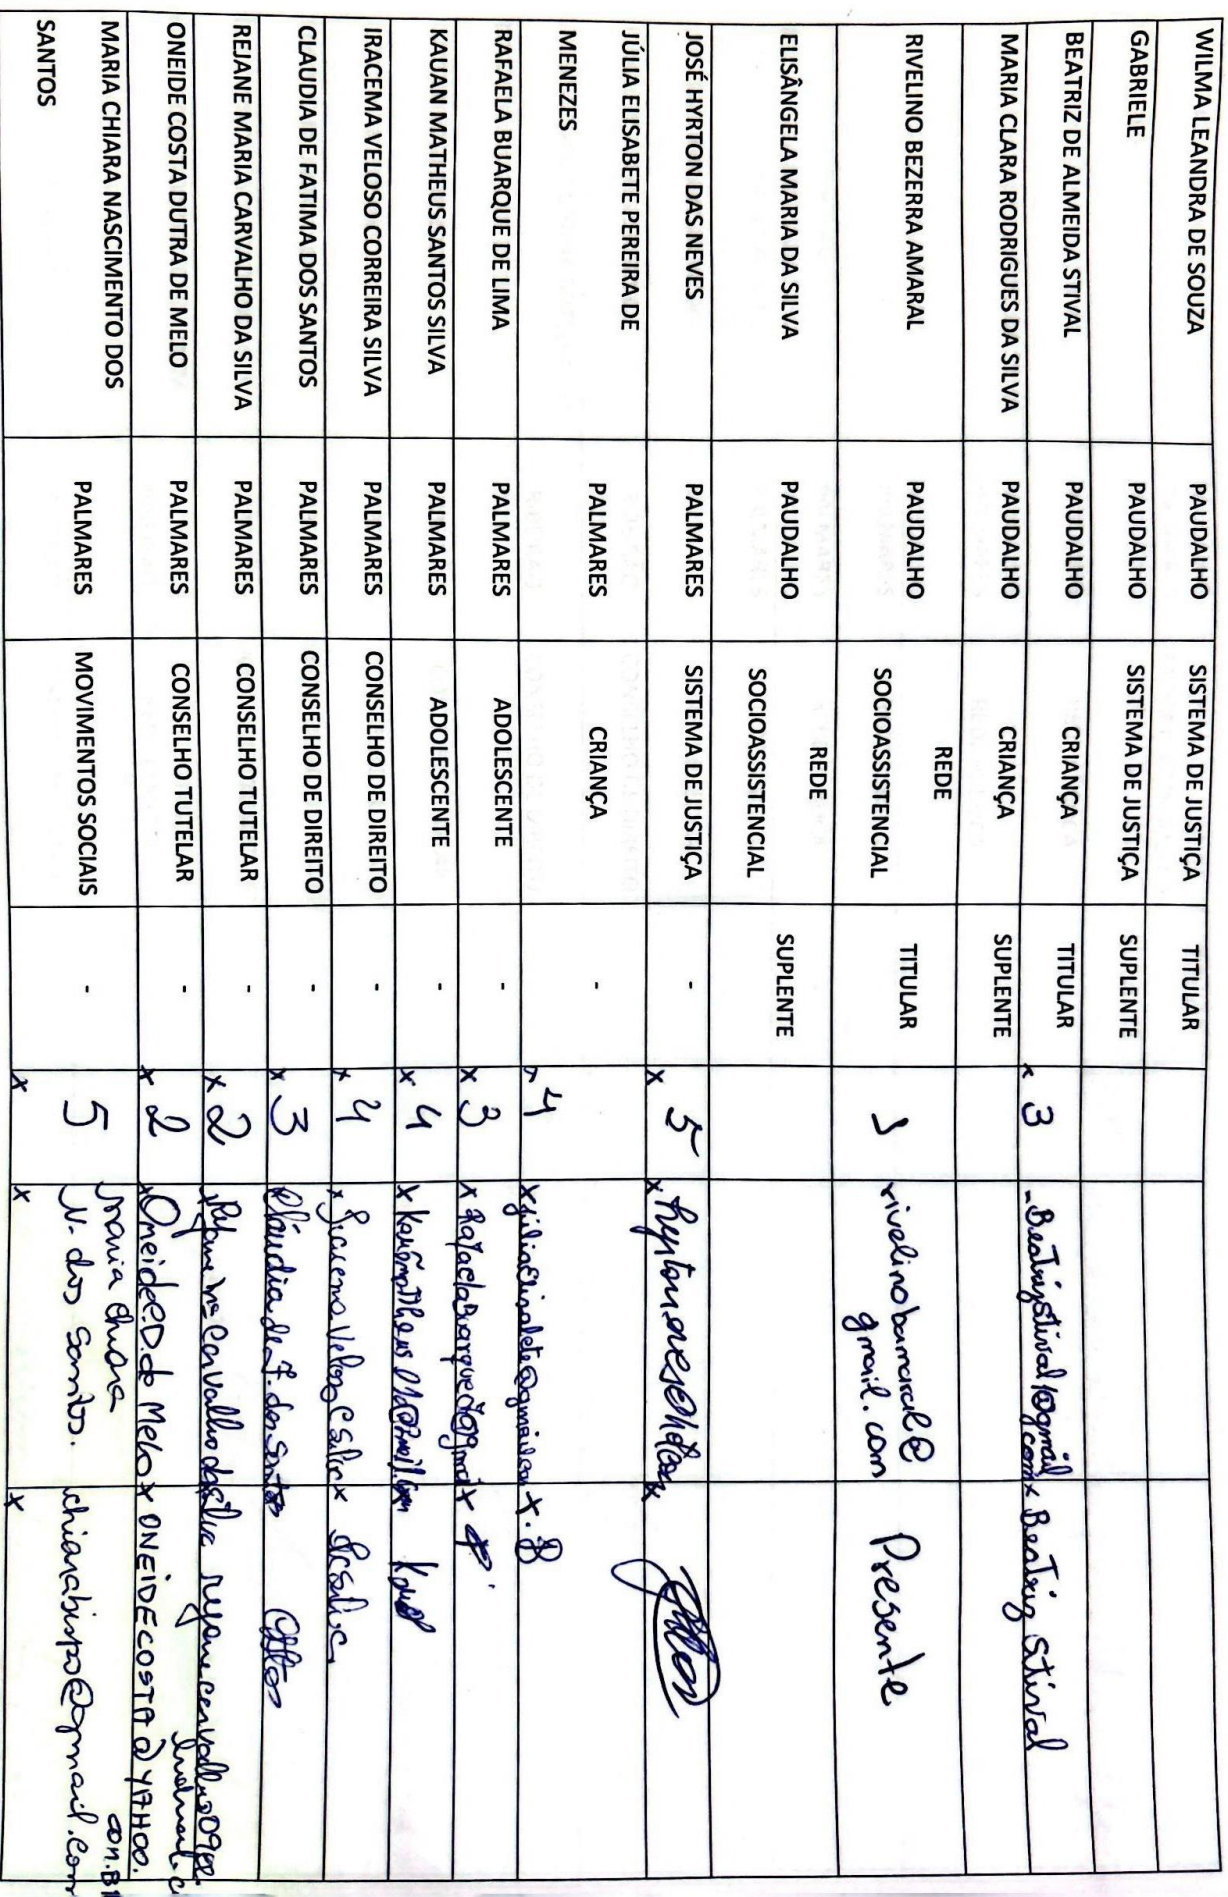 WILMA LEANDRA DE SOUZA PAUDALHO SISTEMA DE JUSTIÇA TITULAR
GABRIELE PAUDALHO SISTEMA DE JUSTIÇA SUPLENTE
BEATRIZ DE ALMEIDA STIVAL PAUDALHO CRIANÇA TITULAR x 3 Beatrizstival10@gmail.com x Beatriz Stival
MARIA CLARA RODRIGUES DA SILVA PAUDALHO CRIANÇA SUPLENTE
RIVELINO BEZERRA AMARAL PAUDALHO REDE
SOCIOASSISTENCIAL TITULAR rivelinobamaral@
gmail.com Presente
ELISÂNGELA MARIA DA SILVA PAUDALHO REDE
SOCIOASSISTENCIAL SUPLENTE
JOSÉ HYRTON DAS NEVES PALMARES SISTEMA DE JUSTIÇA - x 5 x
JÚLIA ELISABETE PEREIRA DE
MENEZES PALMARES CRIANÇA - x 4 x
RAFAELA BUARQUE DE LIMA PALMARES ADOLESCENTE - x 3 x
KAUAN MATHEUS SANTOS SILVA PALMARES ADOLESCENTE - x 4 x
IRACEMA VELOSO CORREIRA SILVA PALMARES CONSELHO DE DIREITO - x 4 x Iracema Veloso C Silva x
CLAUDIA DE FATIMA DOS SANTOS PALMARES CONSELHO DE DIREITO - x 3 Cláudia de F. dos Santos
REJANE MARIA CARVALHO DA SILVA PALMARES CONSELHO TUTELAR - x 2 x Rejane Mª Carvalho da Silva
ONEIDE COSTA DUTRA DE MELO PALMARES CONSELHO TUTELAR - x 2 x Oneide C. D. de Melo x ONEIDECOSTA@YAHOO.
COM.BR
MARIA CHIARA NASCIMENTO DOS
SANTOS PALMARES MOVIMENTOS SOCIAIS - x 5 x Maria Chiara
N. dos Santos. x chiarabispo@gmail.com